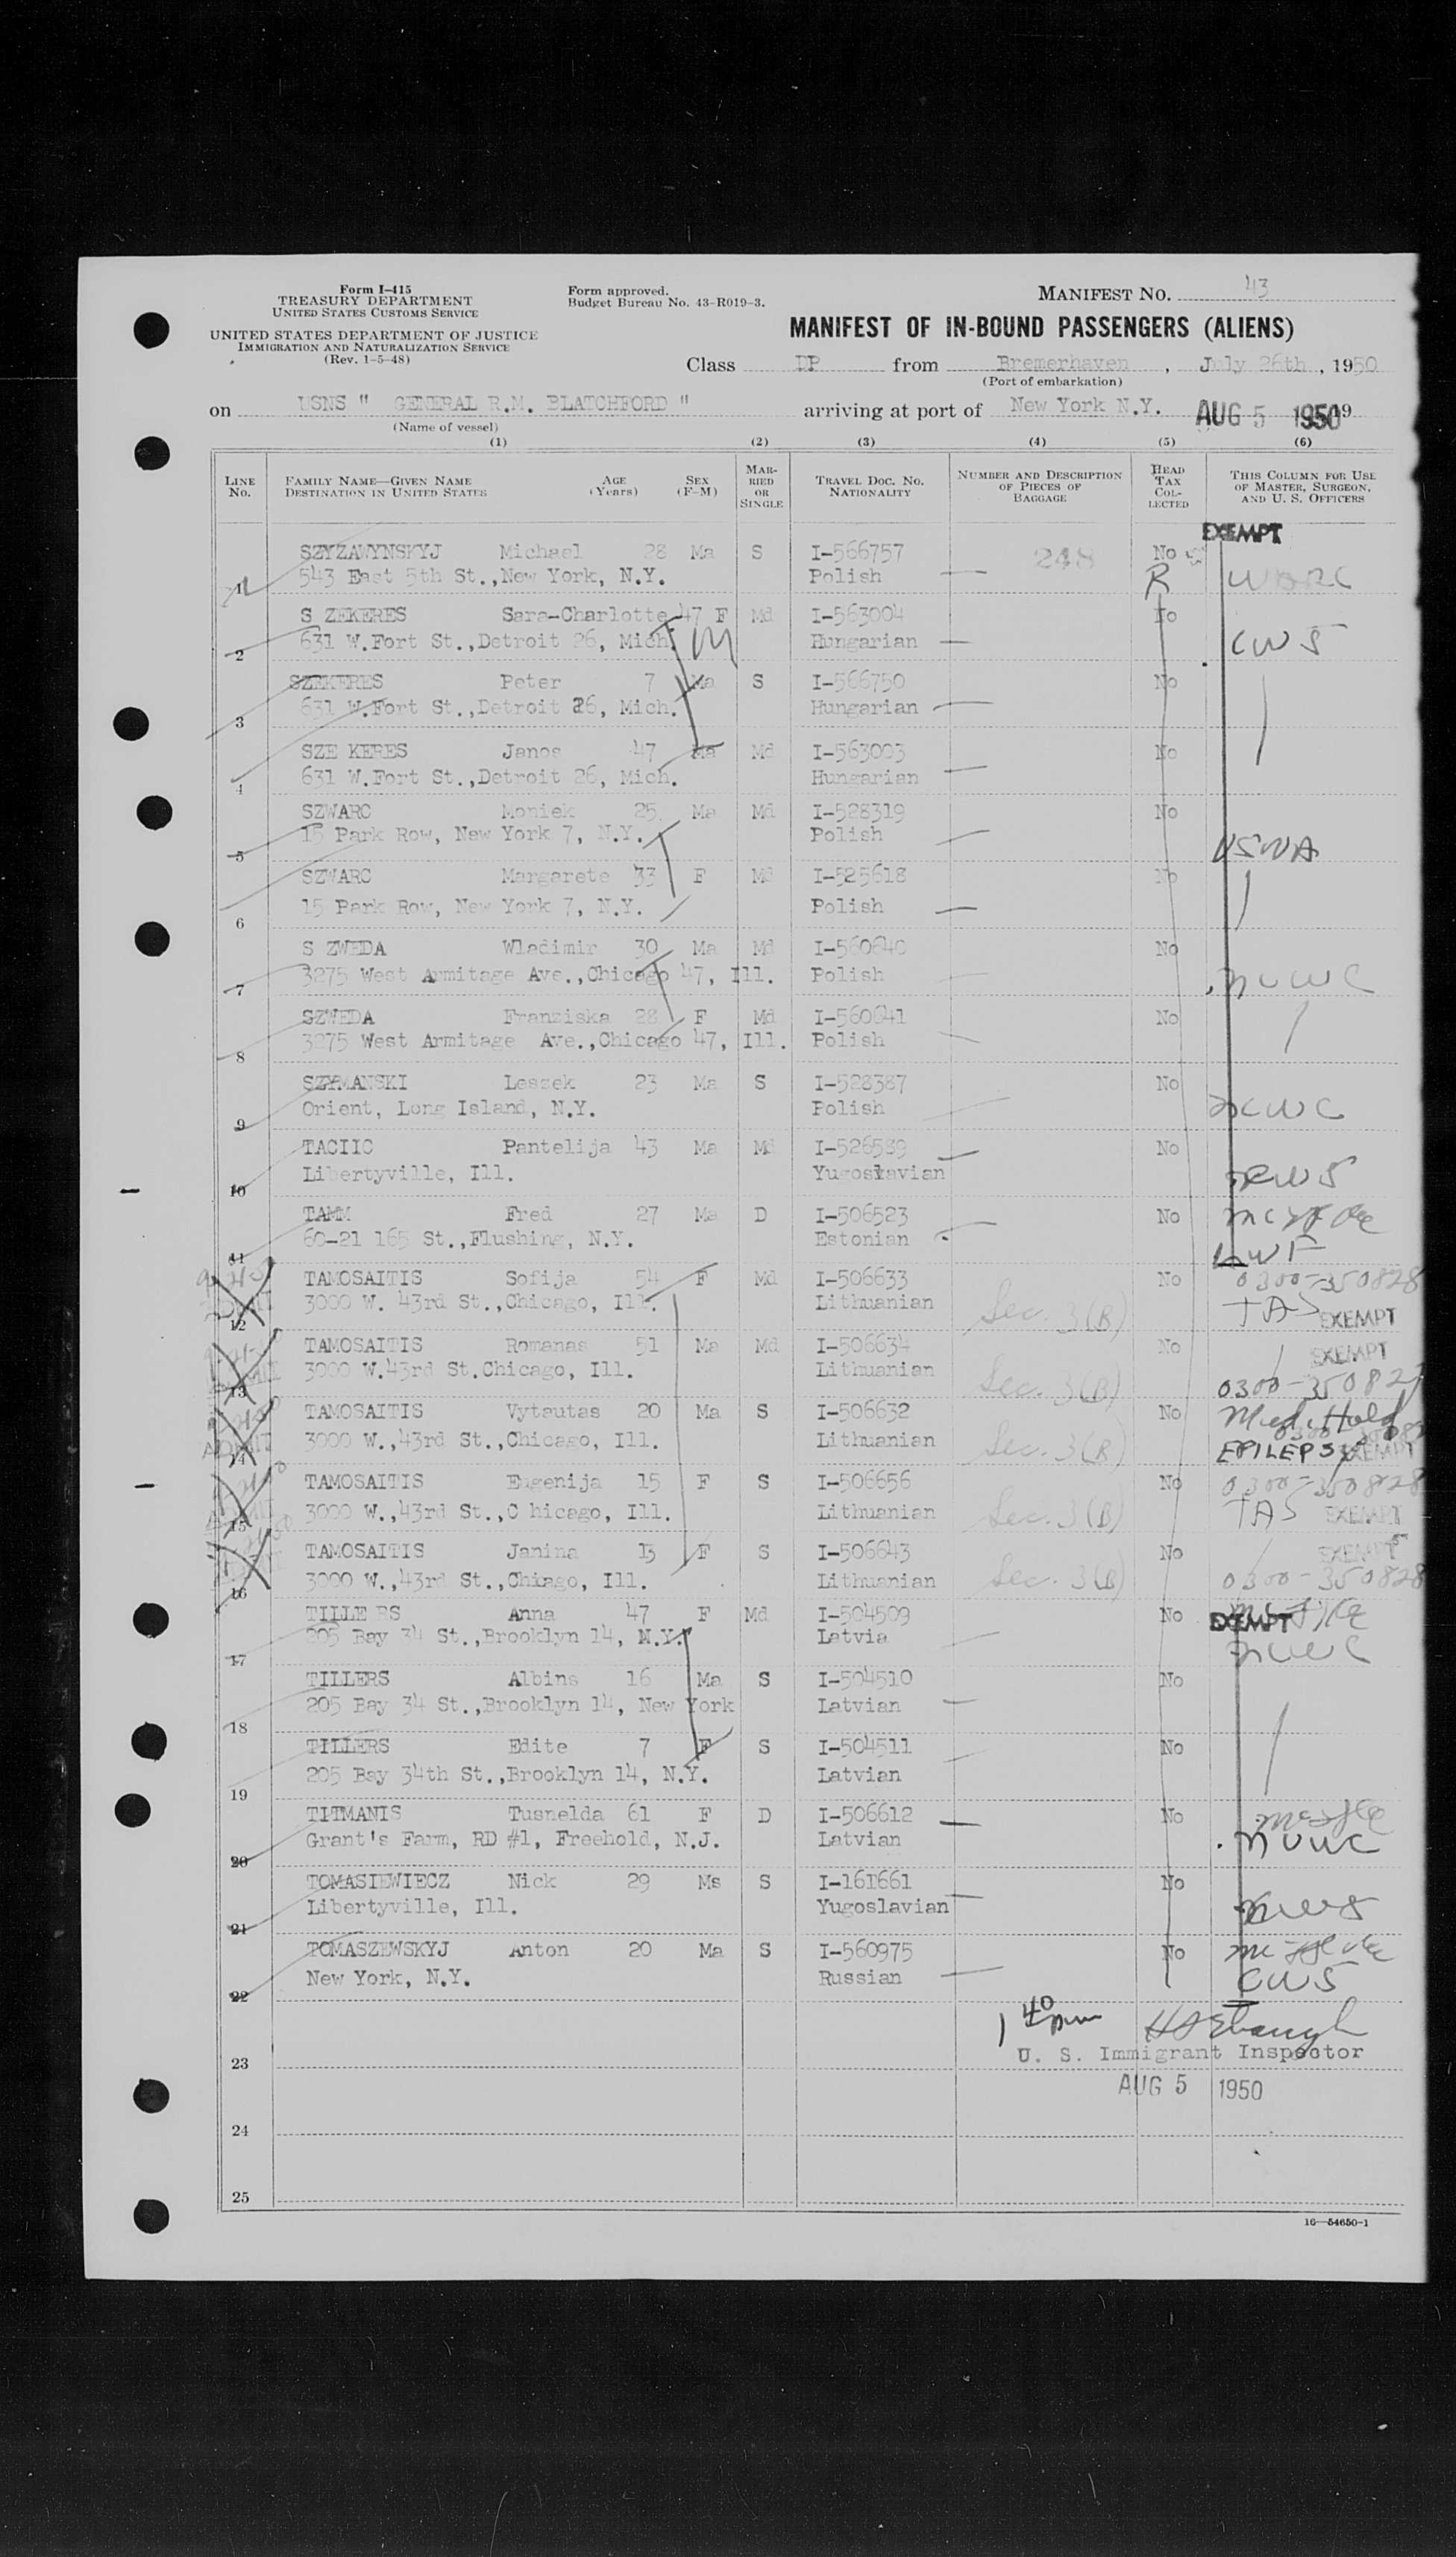 Form I-415
TREASURY DEPARTMENT
UNITED STATES CUSTOMS SERVICE
UNITED STATES DEPARTMENT OF JUSTICE
IMMIGRATION AND NATURALIZATION SERVICE
(Rev. 1-5-48)
Form approved.
Budget Bureau No. 43-R019-3.
MANIFEST NO. 43
MANIFEST OF IN-BOUND PASSENGERS (ALIENS)
Class DP from Bremerhaven, July 26th, 1950
(Port of embarkation)
on USNS " GENERAL R.M. BLATCHFORD " arriving at port of New York N.Y. AUG 5 1950 19
(Name of vessel)
(1) (2) (3) (4) (5) (6)
LINE No. FAMILY NAME—GIVEN NAME DESTINATION IN UNITED STATES AGE (Years) SEX (F-M) MARRIED OR SINGLE TRAVEL DOC. NO. NATIONALITY NUMBER AND DESCRIPTION OF PIECES OF BAGGAGE HEAD TAX COLLECTED THIS COLUMN FOR USE OF MASTER, SURGEON, AND U. S. OFFICERS
EXEMPT
SZYZAWYNSKYJ Michael 28 Ma S I-566757 248 No
1 543 East 5th St.,New York, N.Y. Polish R
S ZEKERES Sara-Charlotte 47 F Md I-563004 No
2 631 W.Fort St.,Detroit 26, Mich. Hungarian CWS
SZEKERES Peter 7 Ma S I-566750 No
3 631 W.Fort St.,Detroit 26, Mich. Hungarian
SZE KERES Janos 47 Ma Md I-563003 No
4 631 W.Fort St.,Detroit 26, Mich. Hungarian
SZWARC Moniek 25 Ma Md I-528319 No
5 15 Park Row, New York 7, N.Y. Polish USNA
SZWARC Margarete 33 F Md I-525618 No
6 15 Park Row, New York 7, N.Y. Polish
S ZWEDA Wladimir 30 Ma Md I-560640 No
7 3275 West Armitage Ave.,Chicago 47, Ill. Polish NCWC
SZWEDA Franziska 28 F Md I-560641 No
8 3275 West Armitage Ave.,Chicago 47, Ill. Polish
SZYMANSKI Leszek 23 Ma S I-528387 No
9 Orient, Long Island, N.Y. Polish NCWC
TACIIC Pantelija 43 Ma Md I-526589 No
10 Libertyville, Ill. Yugoslavian
TAMM Fred 27 Ma D I-506523 No
11 60-21 165 St.,Flushing, N.Y. Estonian LWF
TAMOSAITIS Sofija 54 F Md I-506633 No 0300-350828
12 3000 W. 43rd St.,Chicago, Ill. Lithuanian Sec. 3(B) TAS EXEMPT
TAMOSAITIS Romanas 51 Ma Md I-506634 No EXEMPT
13 3000 W.43rd St.Chicago, Ill. Lithuanian Sec. 3(B)
TAMOSAITIS Vytautas 20 Ma S I-506632 No Med. Hold
14 ADMIT 3000 W.,43rd St.,Chicago, Ill. Lithuanian Sec. 3(B) EPILEPSY EXEMPT
TAMOSAITIS Eugenija 15 F S I-506656 No 0300-350828
15 3000 W.,43rd St.,C hicago, Ill. Lithuanian Sec. 3(B) TAS EXEMPT
TAMOSAITIS Janina 13 F S I-506643 No EXEMPT
16 3000 W.,43rd St.,Chicago, Ill. Lithuanian Sec. 3(B) 0300-350828
TILLE RS Anna 47 F Md I-504509 No EXEMPT
17 205 Bay 34 St.,Brooklyn 14, N.Y. Latvia NCWC
TILLERS Albins 16 Ma S I-504510 No
18 205 Bay 34 St.,Brooklyn 14, New York Latvian
TILLERS Edite 7 F S I-504511 No
19 205 Bay 34th St.,Brooklyn 14, N.Y. Latvian
TITMANIS Tusnelda 61 F D I-506612 No
20 Grant's Farm, RD #1, Freehold, N.J. Latvian NCWC
TOMASIEWIECZ Nick 29 Ms S I-161661 No
21 Libertyville, Ill. Yugoslavian
TOMASZEWSKYJ Anton 20 Ma S I-560975 No
22 New York, N.Y. Russian CWS
1 40 pm
23 U. S. Immigrant Inspector
AUG 5 1950
24
25
16—54650-1